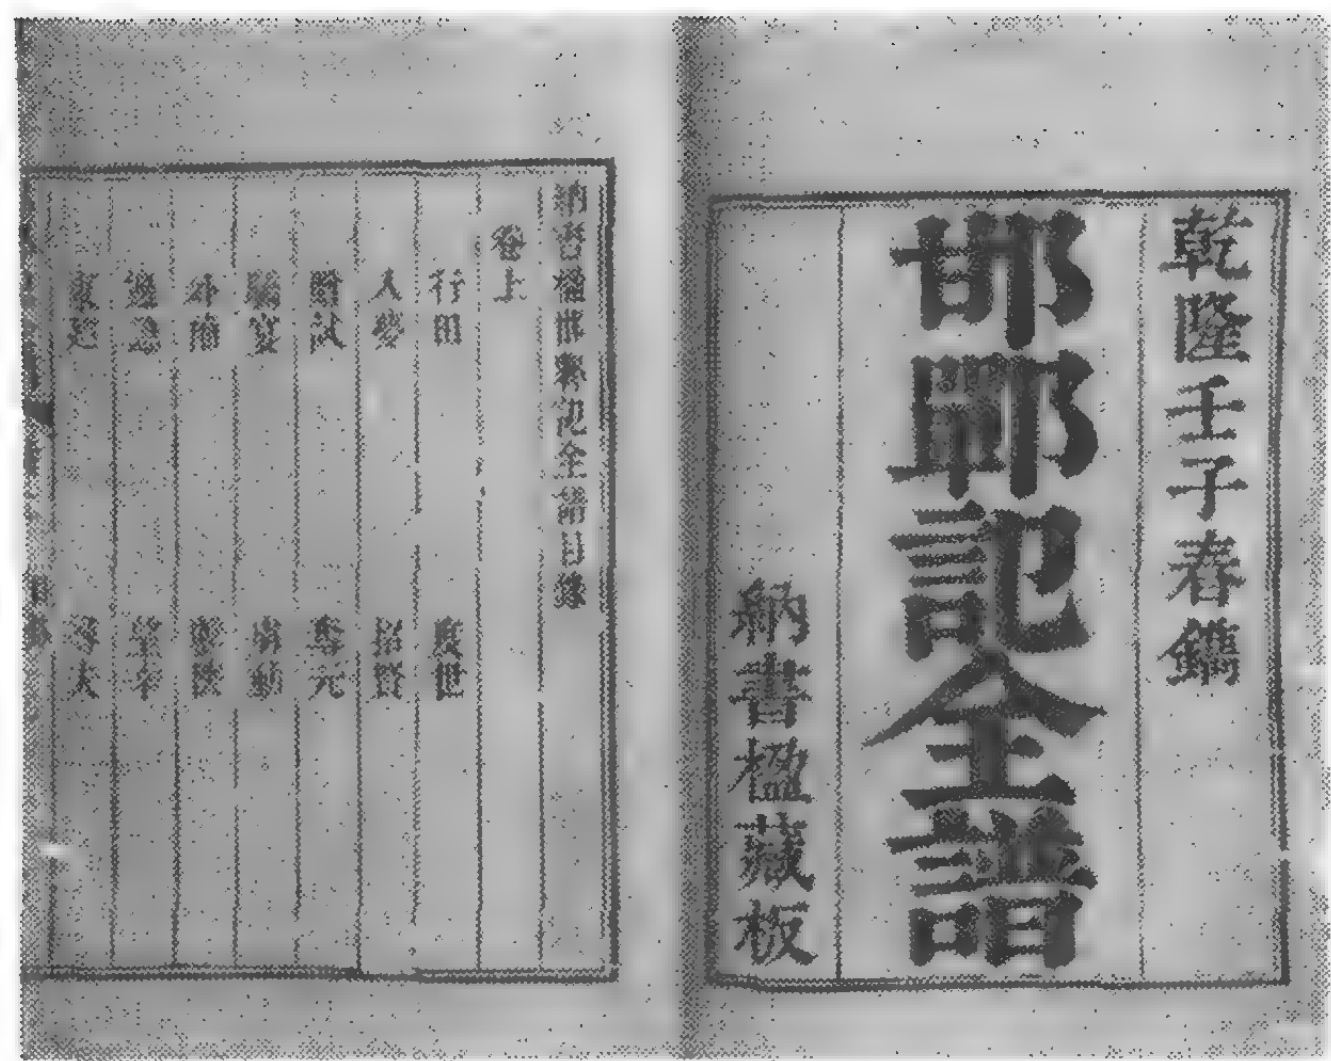 乾隆壬子春鐫
邯鄲記全譜
納書楹藏板
納書楹邯鄲記全譜目錄
卷上
行田
度世
入夢
招賢
贈試
奪元
驕宴
外補
鑿陝
邊急
望幸
東巡